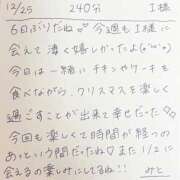 12/25 240分 I様
6日ぶりだね♡今週もI様に
会えて凄く嬉しかったよ(*´˘`*)
今日は一緒にチキンやケーキを
食べながら、クリスマスを楽しく
過ごすことが出来て幸せだった♡
今回も楽しくて時間が経つの
あっという間だったね♡また1/2に
会えるの楽しみにしてるね!! みと